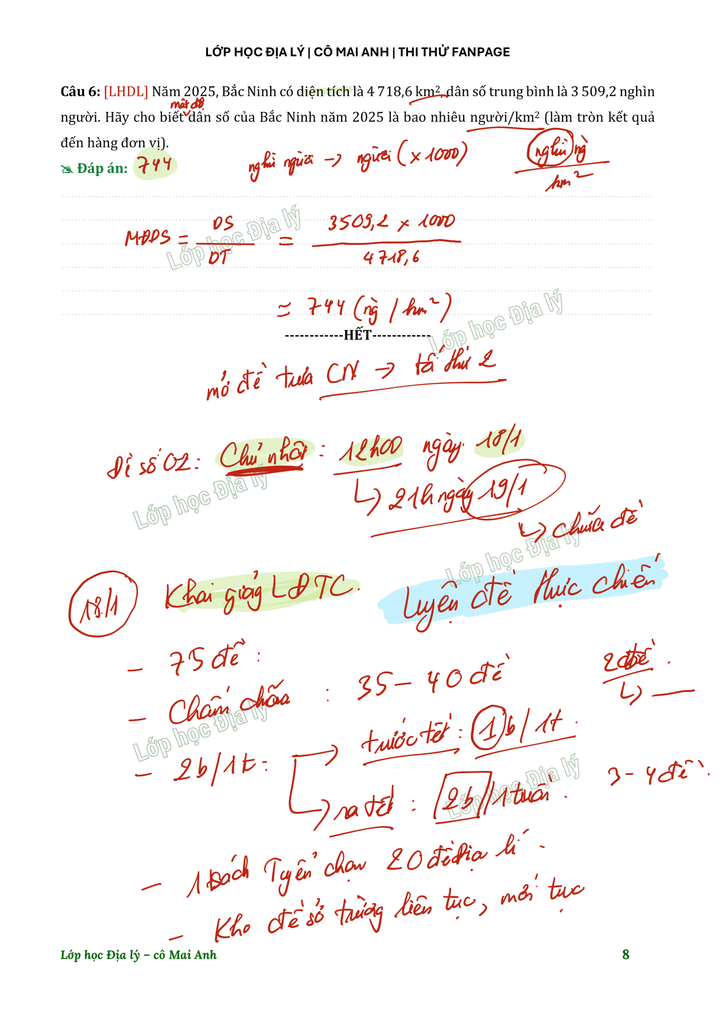 LỚP HỌC ĐỊA LÝ | CÔ MAI ANH | THI THỬ FANPAGE
Câu 6: [LHDL] Năm 2025, Bắc Ninh có diện tích là 4 718,6 km², dân số trung bình là 3 509,2 nghìn
mật độ
người. Hãy cho biết dân số của Bắc Ninh năm 2025 là bao nhiêu người/km² (làm tròn kết quả
đến hàng đơn vị).
Đáp án: 744
nghìn người → người (x 1000)
nghìn ng
km²
MĐDS = DS / DT = 3509,2 x 1000 / 4718,6
≈ 744 (ng / km²)
------------HẾT------------
mở đề trưa CN → tối thứ 2
Đề số 02: Chủ nhật : 12h00 ngày 18/1
↳ 21h ngày 19/1
↳ chữa đề
18/1 Khai giảng LĐTC. Luyện đề thực chiến
- 75 đề :
- Chấm chữa : 35 - 40 đề
2 đề .
- 2b/1t :
→ trước tết : 1b/1t .
→ ra tết : 2b/1 tuần .
3 - 4 đề .
- 1 sách Tuyển chọn 20 đề Địa lí .
- Kho đề sở trường liên tục, mới tục
Lớp học Địa lý – cô Mai Anh
8
Lớp học Địa lý
Lớp học Địa lý
Lớp học Địa lý
Lớp học Địa lý
Lớp học Địa lý
Lớp học Địa lý